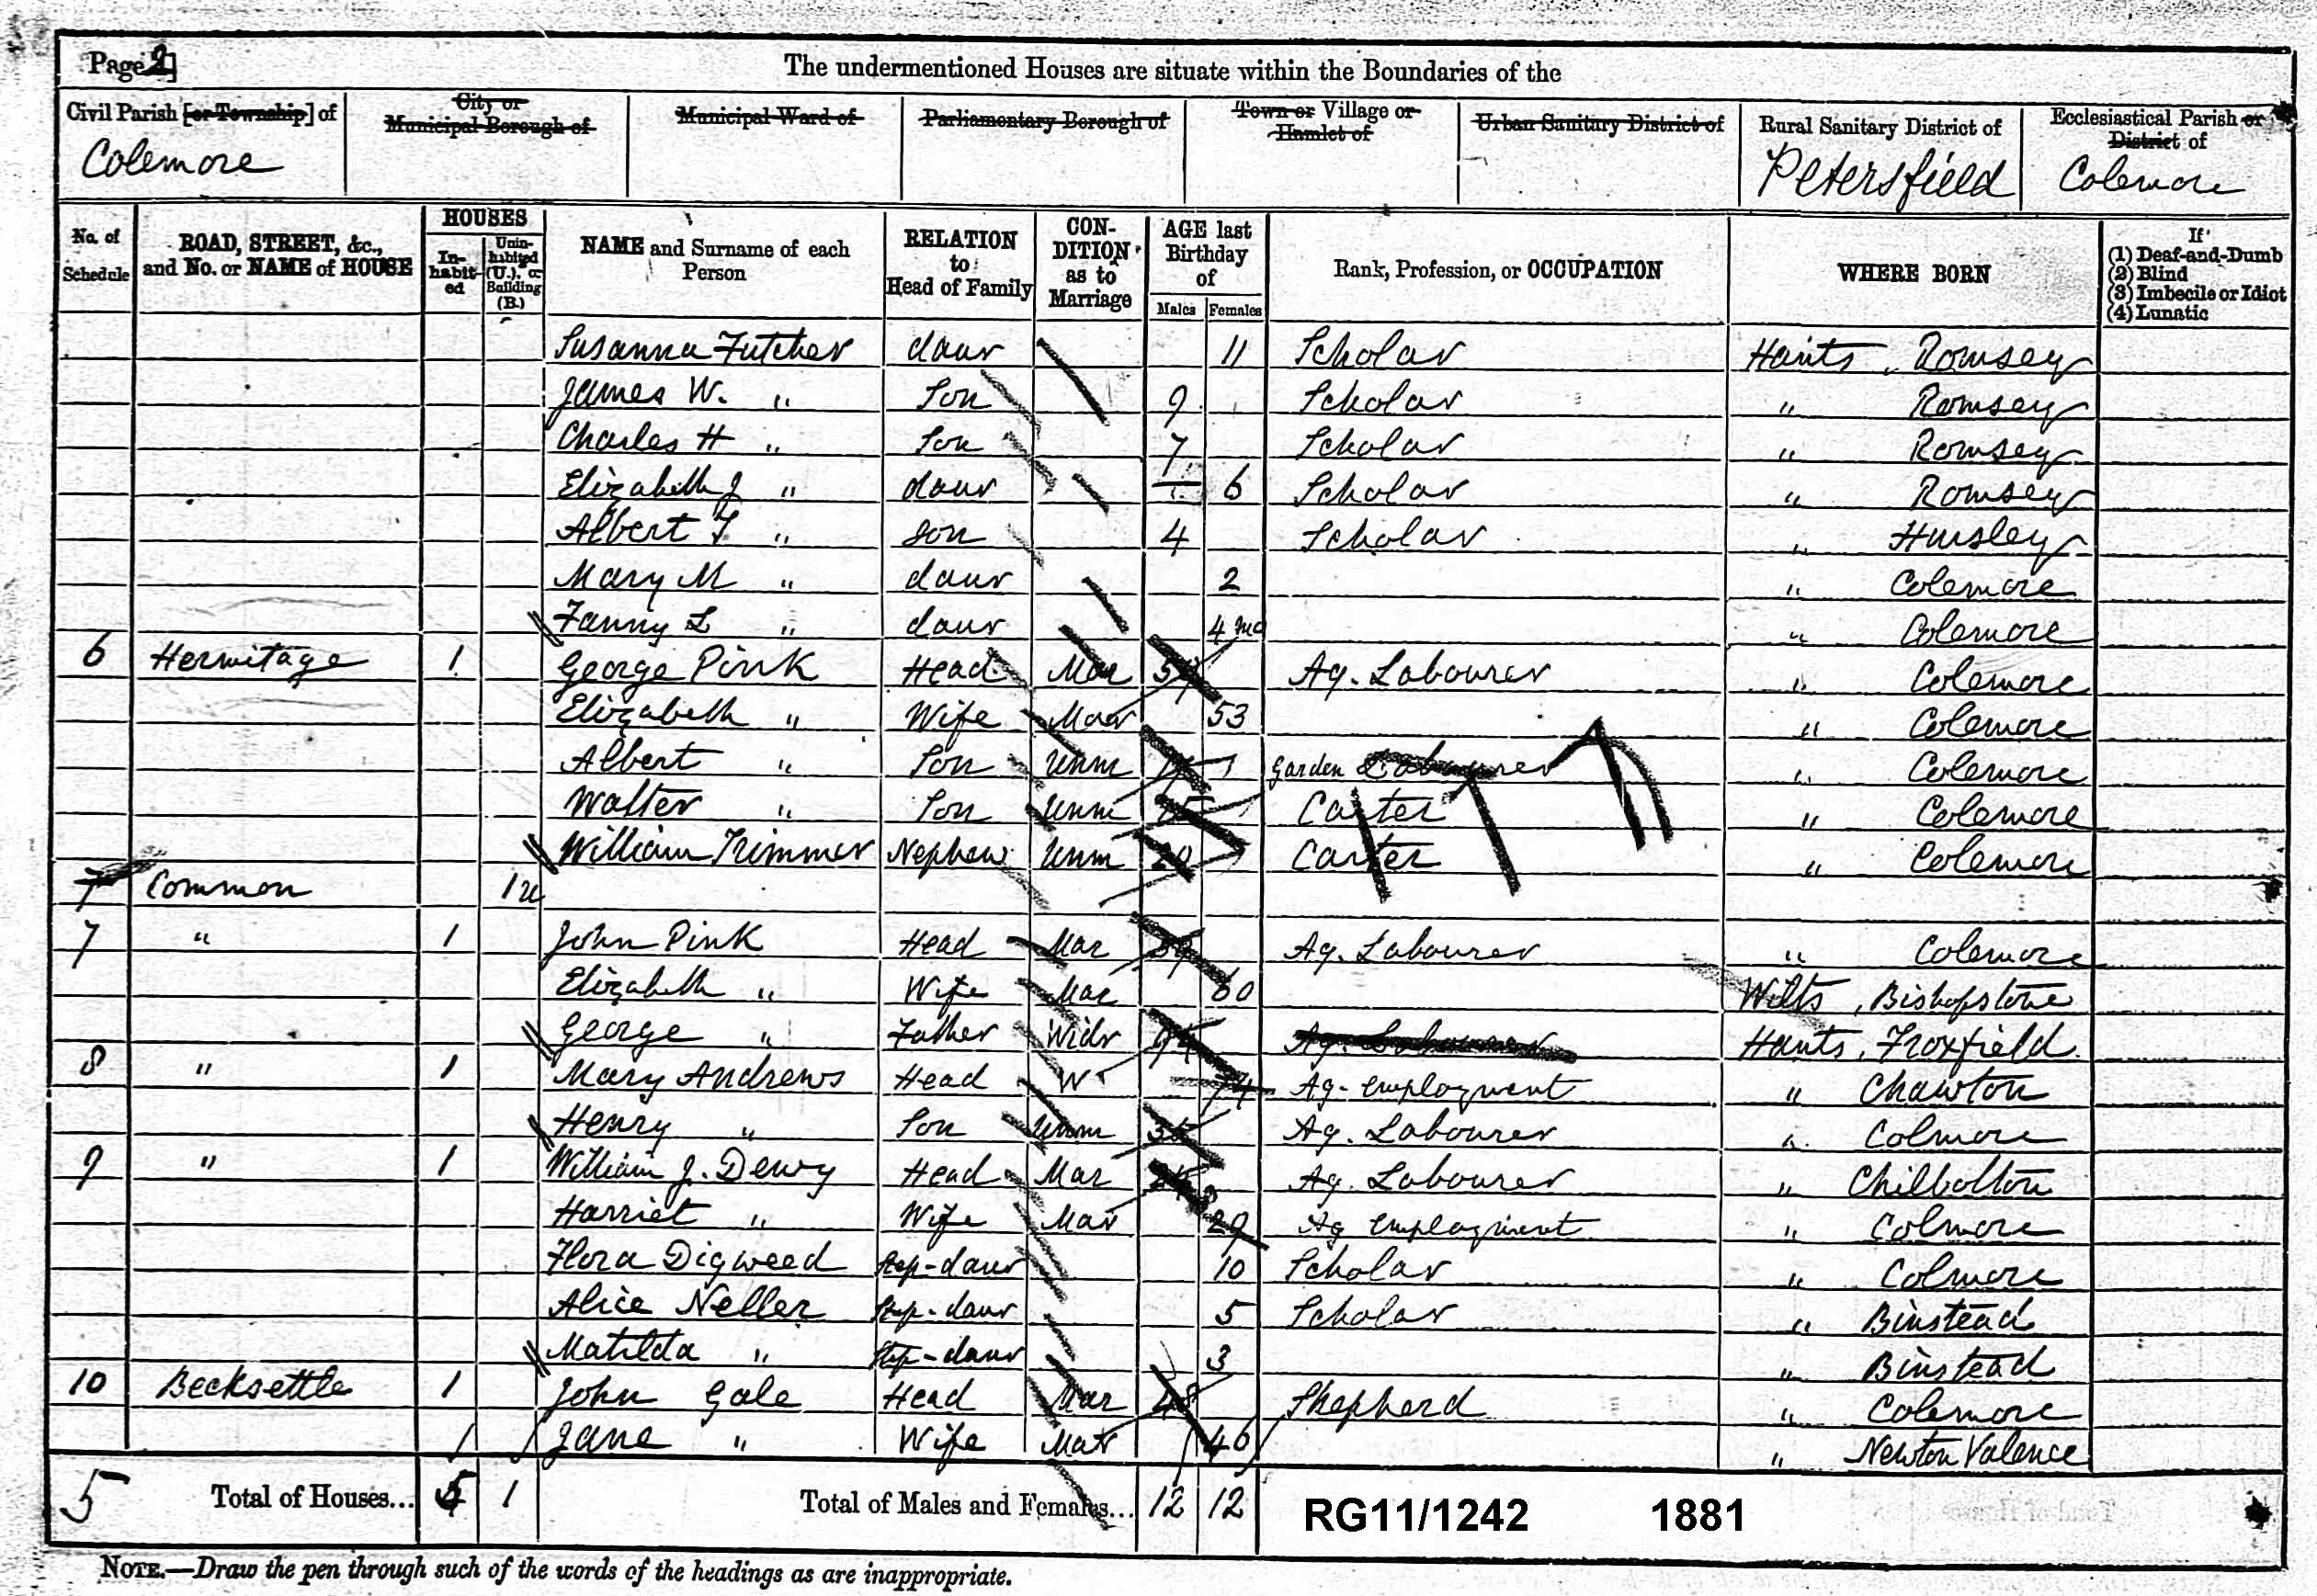 Page 2]
The undermentioned Houses are situate within the Boundaries of the
Civil Parish [or Township] of
Colemore
City or Municipal Borough of
Municipal Ward of
Parliamentary Borough of
Town or Village or Hamlet of
Urban Sanitary District of
Rural Sanitary District of
Petersfield
Ecclesiastical Parish or District of
Colemore
No. of Schedule
ROAD, STREET, &c., and No. or NAME of HOUSE
HOUSES
In-habit-ed
Unin-habited (U.), or Building (B.)
NAME and Surname of each Person
RELATION to Head of Family
CON-DITION as to Marriage
AGE last Birthday of
Males
Females
Rank, Profession, or OCCUPATION
WHERE BORN
If
(1) Deaf-and-Dumb
(2) Blind
(3) Imbecile or Idiot
(4) Lunatic
Susanna Futcher daur 11 Scholar Hants, Romsey
James W. " Son 9 Scholar " Romsey
Charles H " Son 7 Scholar " Romsey
Elizabeth J " daur 6 Scholar " Romsey
Albert F " son 4 Scholar " Hursley
Mary M " daur 2 " Colemore
Fanny L " daur 4 mo " Colemore
6 Hermitage 1 George Pink Head Mar Ag. Labourer " Colemore
Elizabeth " Wife Mar 53 " Colemore
Albert " Son Unm Garden Labourer " Colemore
Walter " Son Unm 15 Carter " Colemore
William Trimmer Nephew Unm 20 Carter " Colemore
7 Common 1u
7 " 1 John Pink Head Mar 59 Ag. Labourer " Colemore
Elizabeth " Wife Mar 60 Wilts, Bishopstone
George " Father Widr Ag. Labourer Hants, Froxfield
8 " 1 Mary Andrews Head W 74 Ag. employment " Chawton
Henry " Son Unm 35 Ag. Labourer " Colmore
9 " 1 William J. Dewy Head Mar Ag. Labourer " Chilbolton
Harriet " Wife Mar 29 Ag employment " Colmore
Flora Digweed Step-daur 10 Scholar " Colmore
Alice Neller Step-daur 5 Scholar " Binstead
Matilda " Step-daur 3 " Binstead
10 Becksettle 1 John Gale Head Mar 48 Shepherd " Colemore
Jane " Wife Mar 46 " Newton Valence
5 Total of Houses... 1 Total of Males and Females... 12 12 RG11/1242 1881
NOTE.—Draw the pen through such of the words of the headings as are inappropriate.